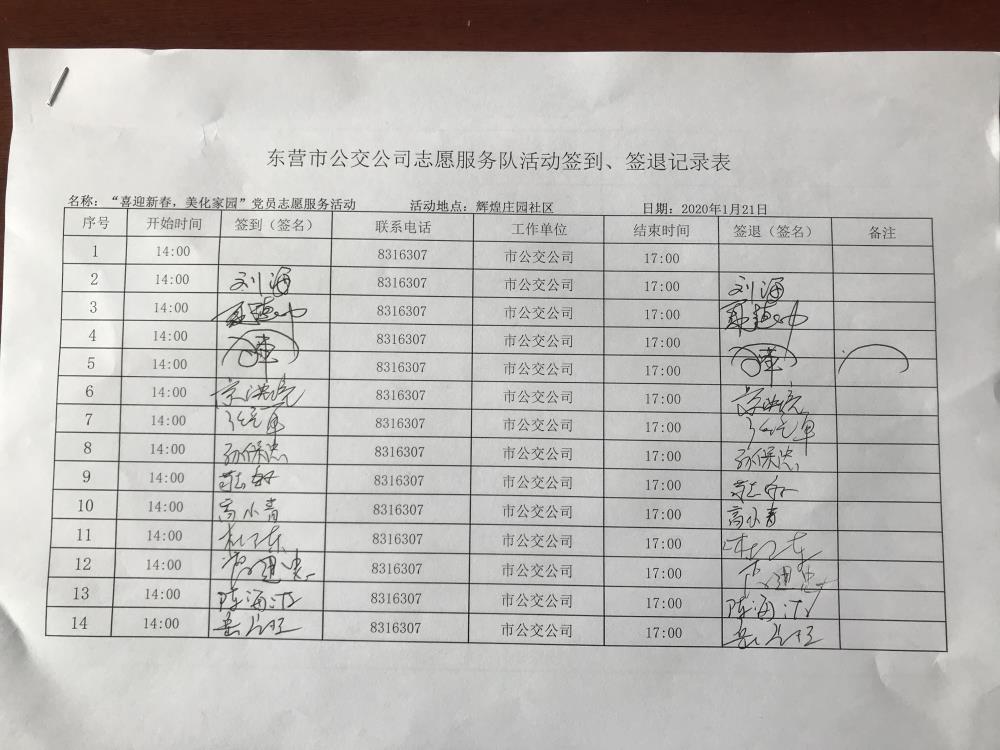 东营市公交公司志愿服务队活动签到、签退记录表
名称：“喜迎新春，美化家园”党员志愿服务活动 活动地点：辉煌庄园社区 日期：2020年1月21日
序号 开始时间 签到（签名） 联系电话 工作单位 结束时间 签退（签名） 备注
1 14:00 8316307 市公交公司 17:00
2 14:00 刘海 8316307 市公交公司 17:00 刘海
3 14:00 8316307 市公交公司 17:00
4 14:00 8316307 市公交公司 17:00
5 14:00 8316307 市公交公司 17:00
6 14:00 8316307 市公交公司 17:00
7 14:00 8316307 市公交公司 17:00
8 14:00 孙保忠 8316307 市公交公司 17:00 孙保忠
9 14:00 8316307 市公交公司 17:00
10 14:00 高小青 8316307 市公交公司 17:00 高小青
11 14:00 8316307 市公交公司 17:00
12 14:00 8316307 市公交公司 17:00
13 14:00 8316307 市公交公司 17:00
14 14:00 8316307 市公交公司 17:00